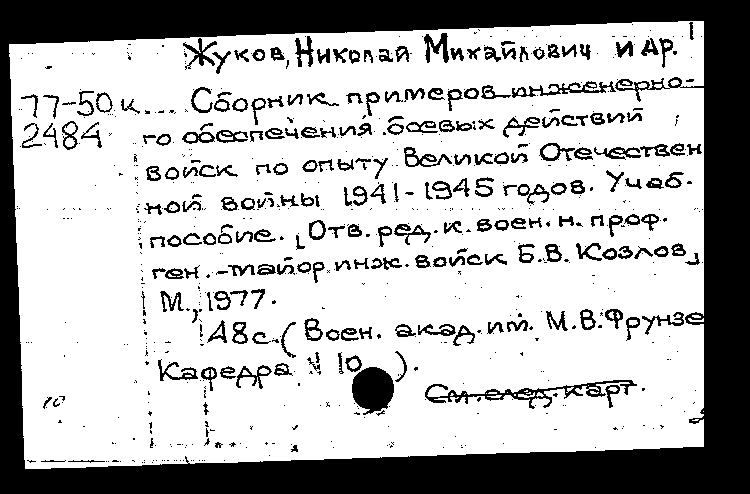 Жуков, Николай Михайлович и др.
77-50к... Сборник примеров инженерно-
2484 го обеспечения боевых действий
войск по опыту Великой Отечествен
ной войны 1941-1945 годов. Учеб.
пособие. [Отв. ред. к. воен. н. проф.
ген.-майор инж. войск Б.В. Козлов]
М., 1977.
48с. (Воен. акад. им. М.В. Фрунзе
Кафедра N 10 ).
См. след. карт.
10